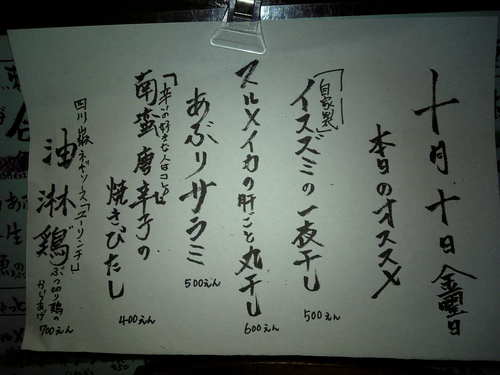 十月十日金曜日
本日のオススメ
「自家製」
イスズミの一夜干し
500えん
スルメイカの肝ごと丸干し
600えん
あぶりサラミ
500えん
「辛いの好きな人はコレ」
南蛮唐辛子の
焼きびたし
400えん
四川出版ネギソース"ユーリンチー"
油淋鶏
ぶつ切り鶏の
からあげ
700えん